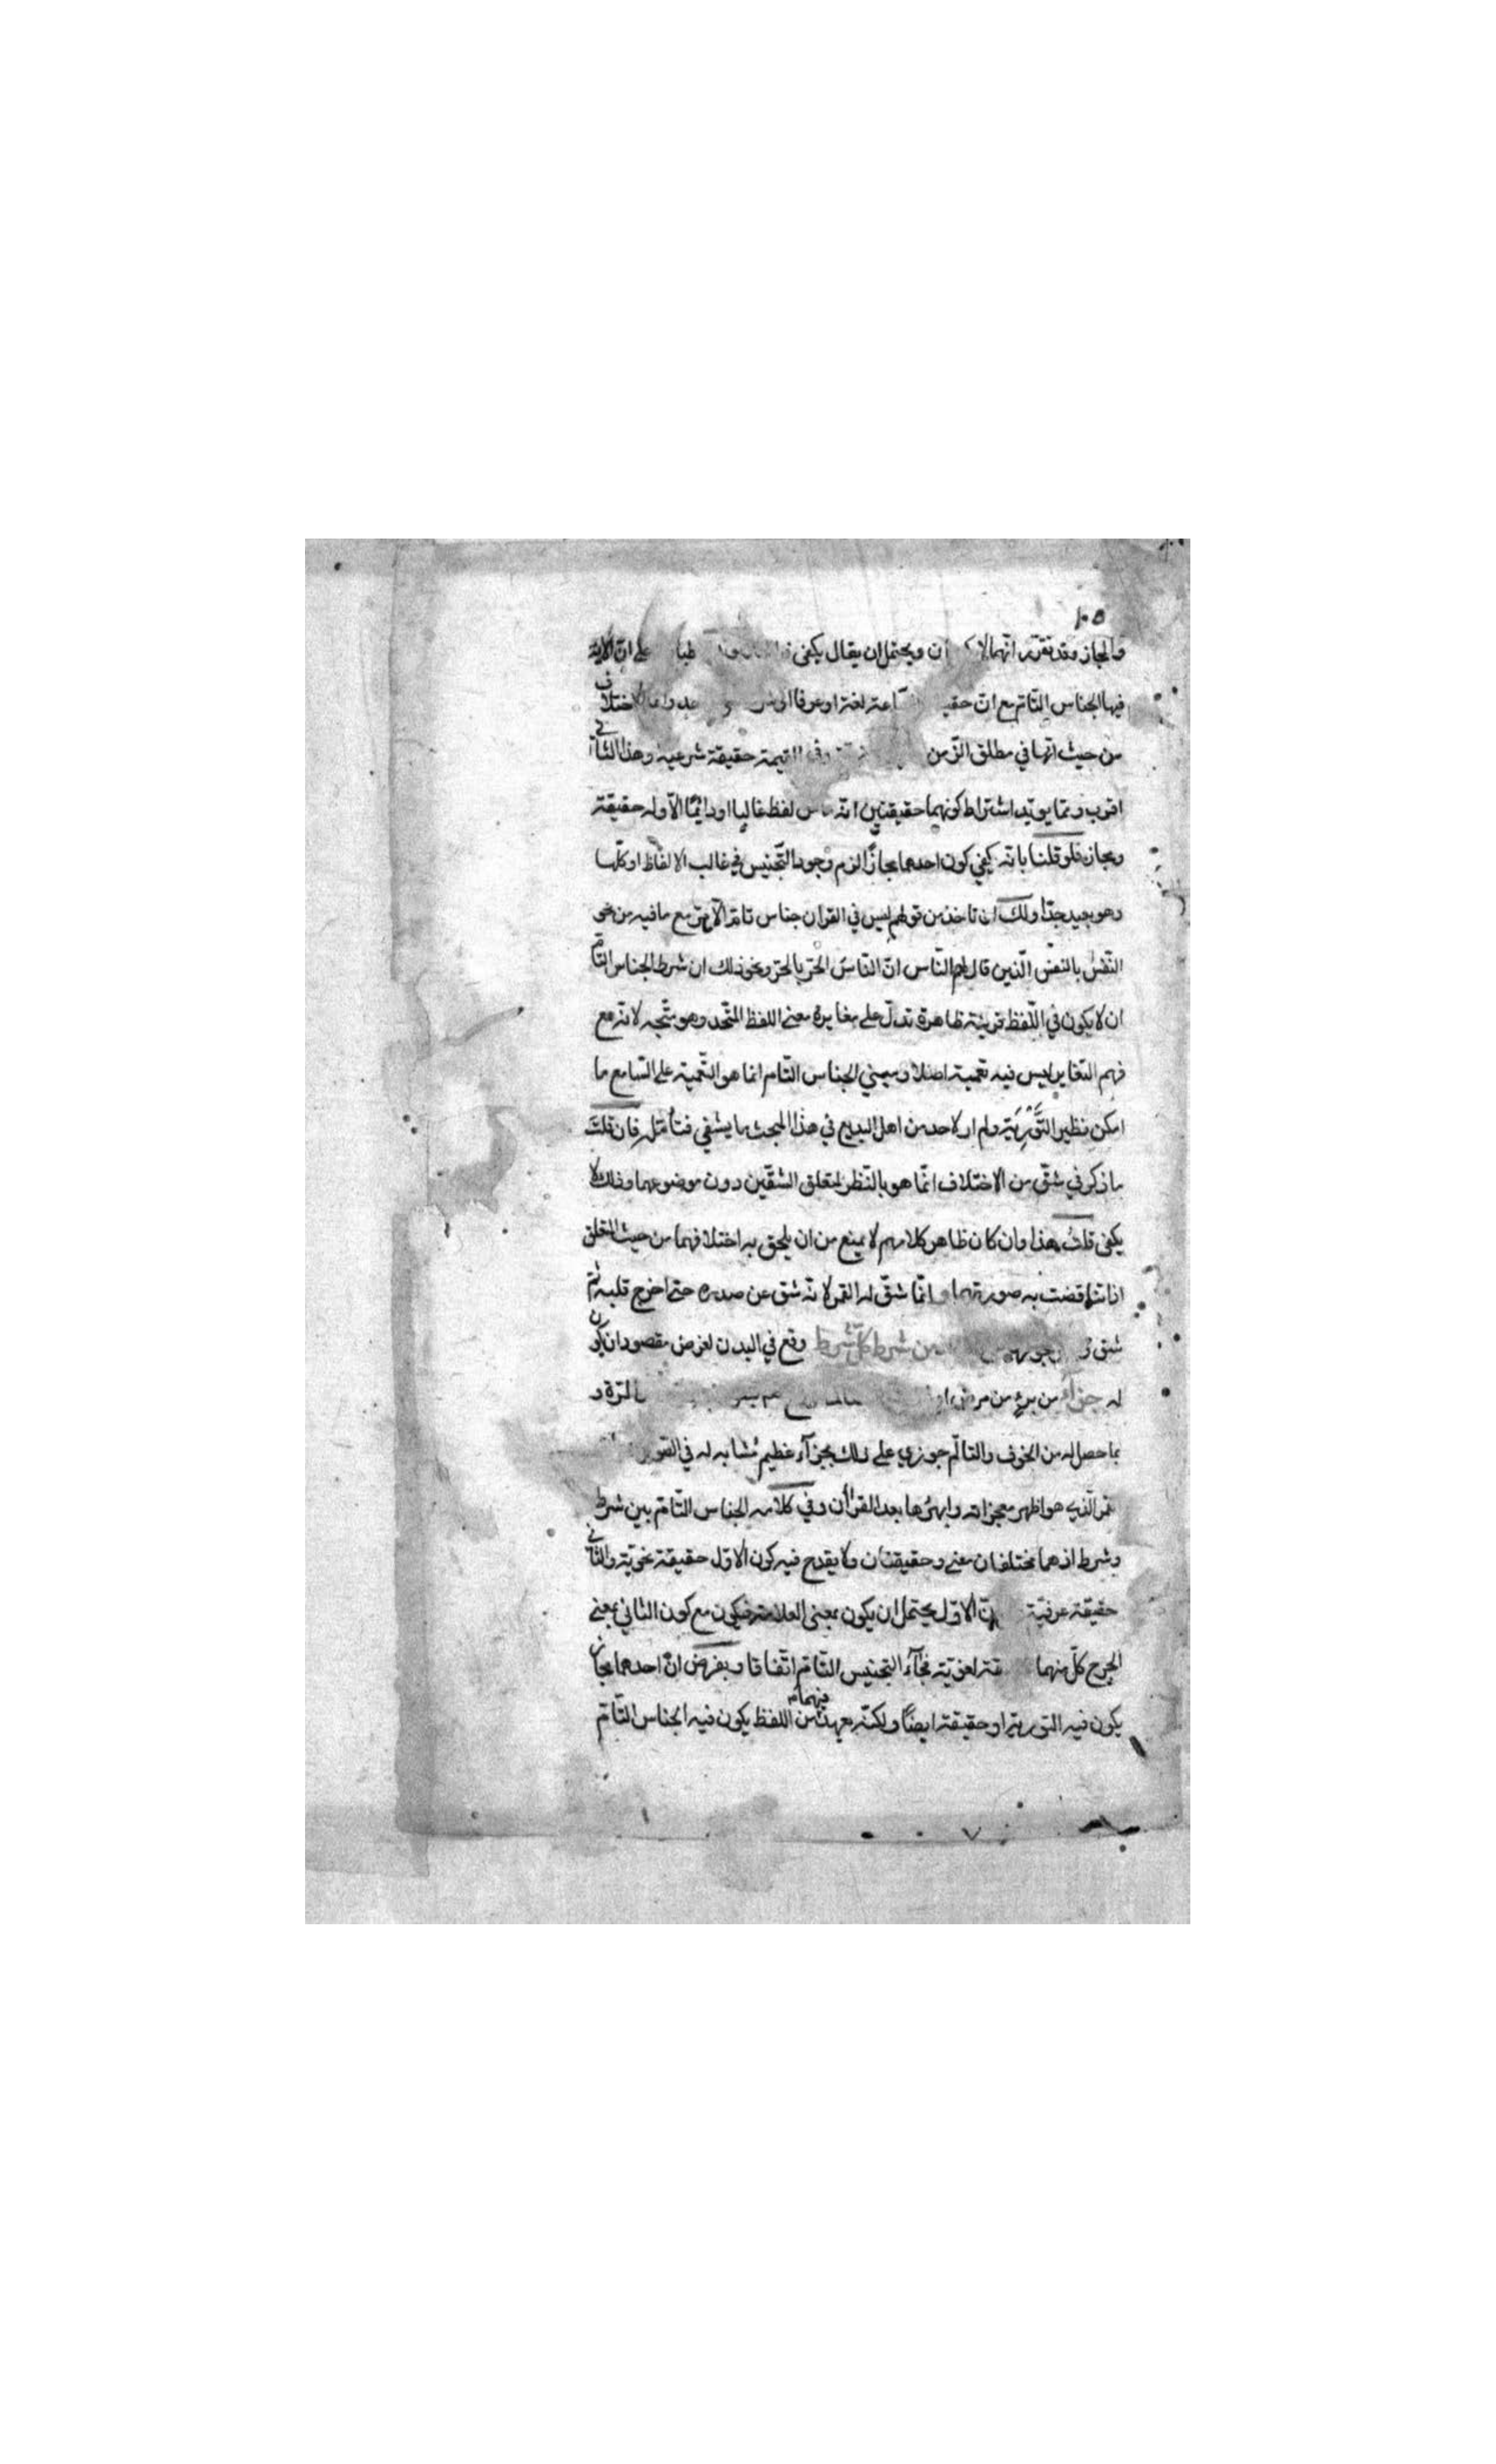 ١٠٥
والمجاز وقد تقرر انهما لا ويحتمل ان يقال يكفي على ان الآية
فيها الجناس التام مع ان لغة او عرفا الاختلاف
من حيث انها في مطلق الزمن القيمة حقيقة شرعية وهذا الثاني
اقرب ومما يويد اشتراط كونهما حقيقتين انه لفظ غالبا او دائما الا وله حقيقة
ومجاز فلو قلنا بانه يكفي كون احدهما مجازا لزم وجود التجنيس في غالب الالفاظ او كلها
وهو بعيد جدا ولك ان تاخذ من قولهم ليس في القران جناس تام الا مع ما فيه من نحو
النفس بالنفس الذين قال لهم الناس ان الناس الحر بالحر ونحو ذلك ان شرط الجناس التام
ان لا يكون في اللفظ قرينة ظاهرة تدل على مغايرة معنى اللفظ المتحد وهو متجه لانه مع
فهم التغاير ليس فيه تعمية اصلا ومبني الجناس التام انما هو التعمية على السامع ما
امكن نظير التورية ولم ار لاحد من اهل البديع في هذا المبحث ما يشفي فتأمله فان قلت
ما ذكر في شق من الاختلاف انما هو بالنظر لمتعلق الشقين دون موضوعهما وذلك لا
يكفي قلت هذا وان كان ظاهر كلامهم لا يمنع من ان يلحق به اختلافهما من حيث المتعلق
اذا تناقضت به صورتهما وانما شق له القمر لانه شق عن صدره حتى اخرج قلبه ثم
شق من شرط كل شرط وقع في البدن لغرض مقصود ان يكون
له جزاء من برء من مرض المرة و
بما حصل له من الخوف والتالم جوزي على ذلك بجزآء عظيم مشابه له في
القمر الذي هو اظهر معجزاته وابهرها بعد القرأن وفي كلامه الجناس التام بين شرط
وشرط اذ هما مختلفان معنى وحقيقتان ولا يقدح فيه كون الاول حقيقة نحوية والثاني
حقيقة عرفية الاول يحتمل ان يكون بمعنى العلامة فيكون مع كون الثاني بمعنى
الجرح كل منهما لغوية فجآء التجنيس التام اتفاقا وبفرض ان احدهما مجاز
يكون فيه التورية او حقيقة ايضا ولكنه فيهما من اللفظ يكون فيه الجناس التام